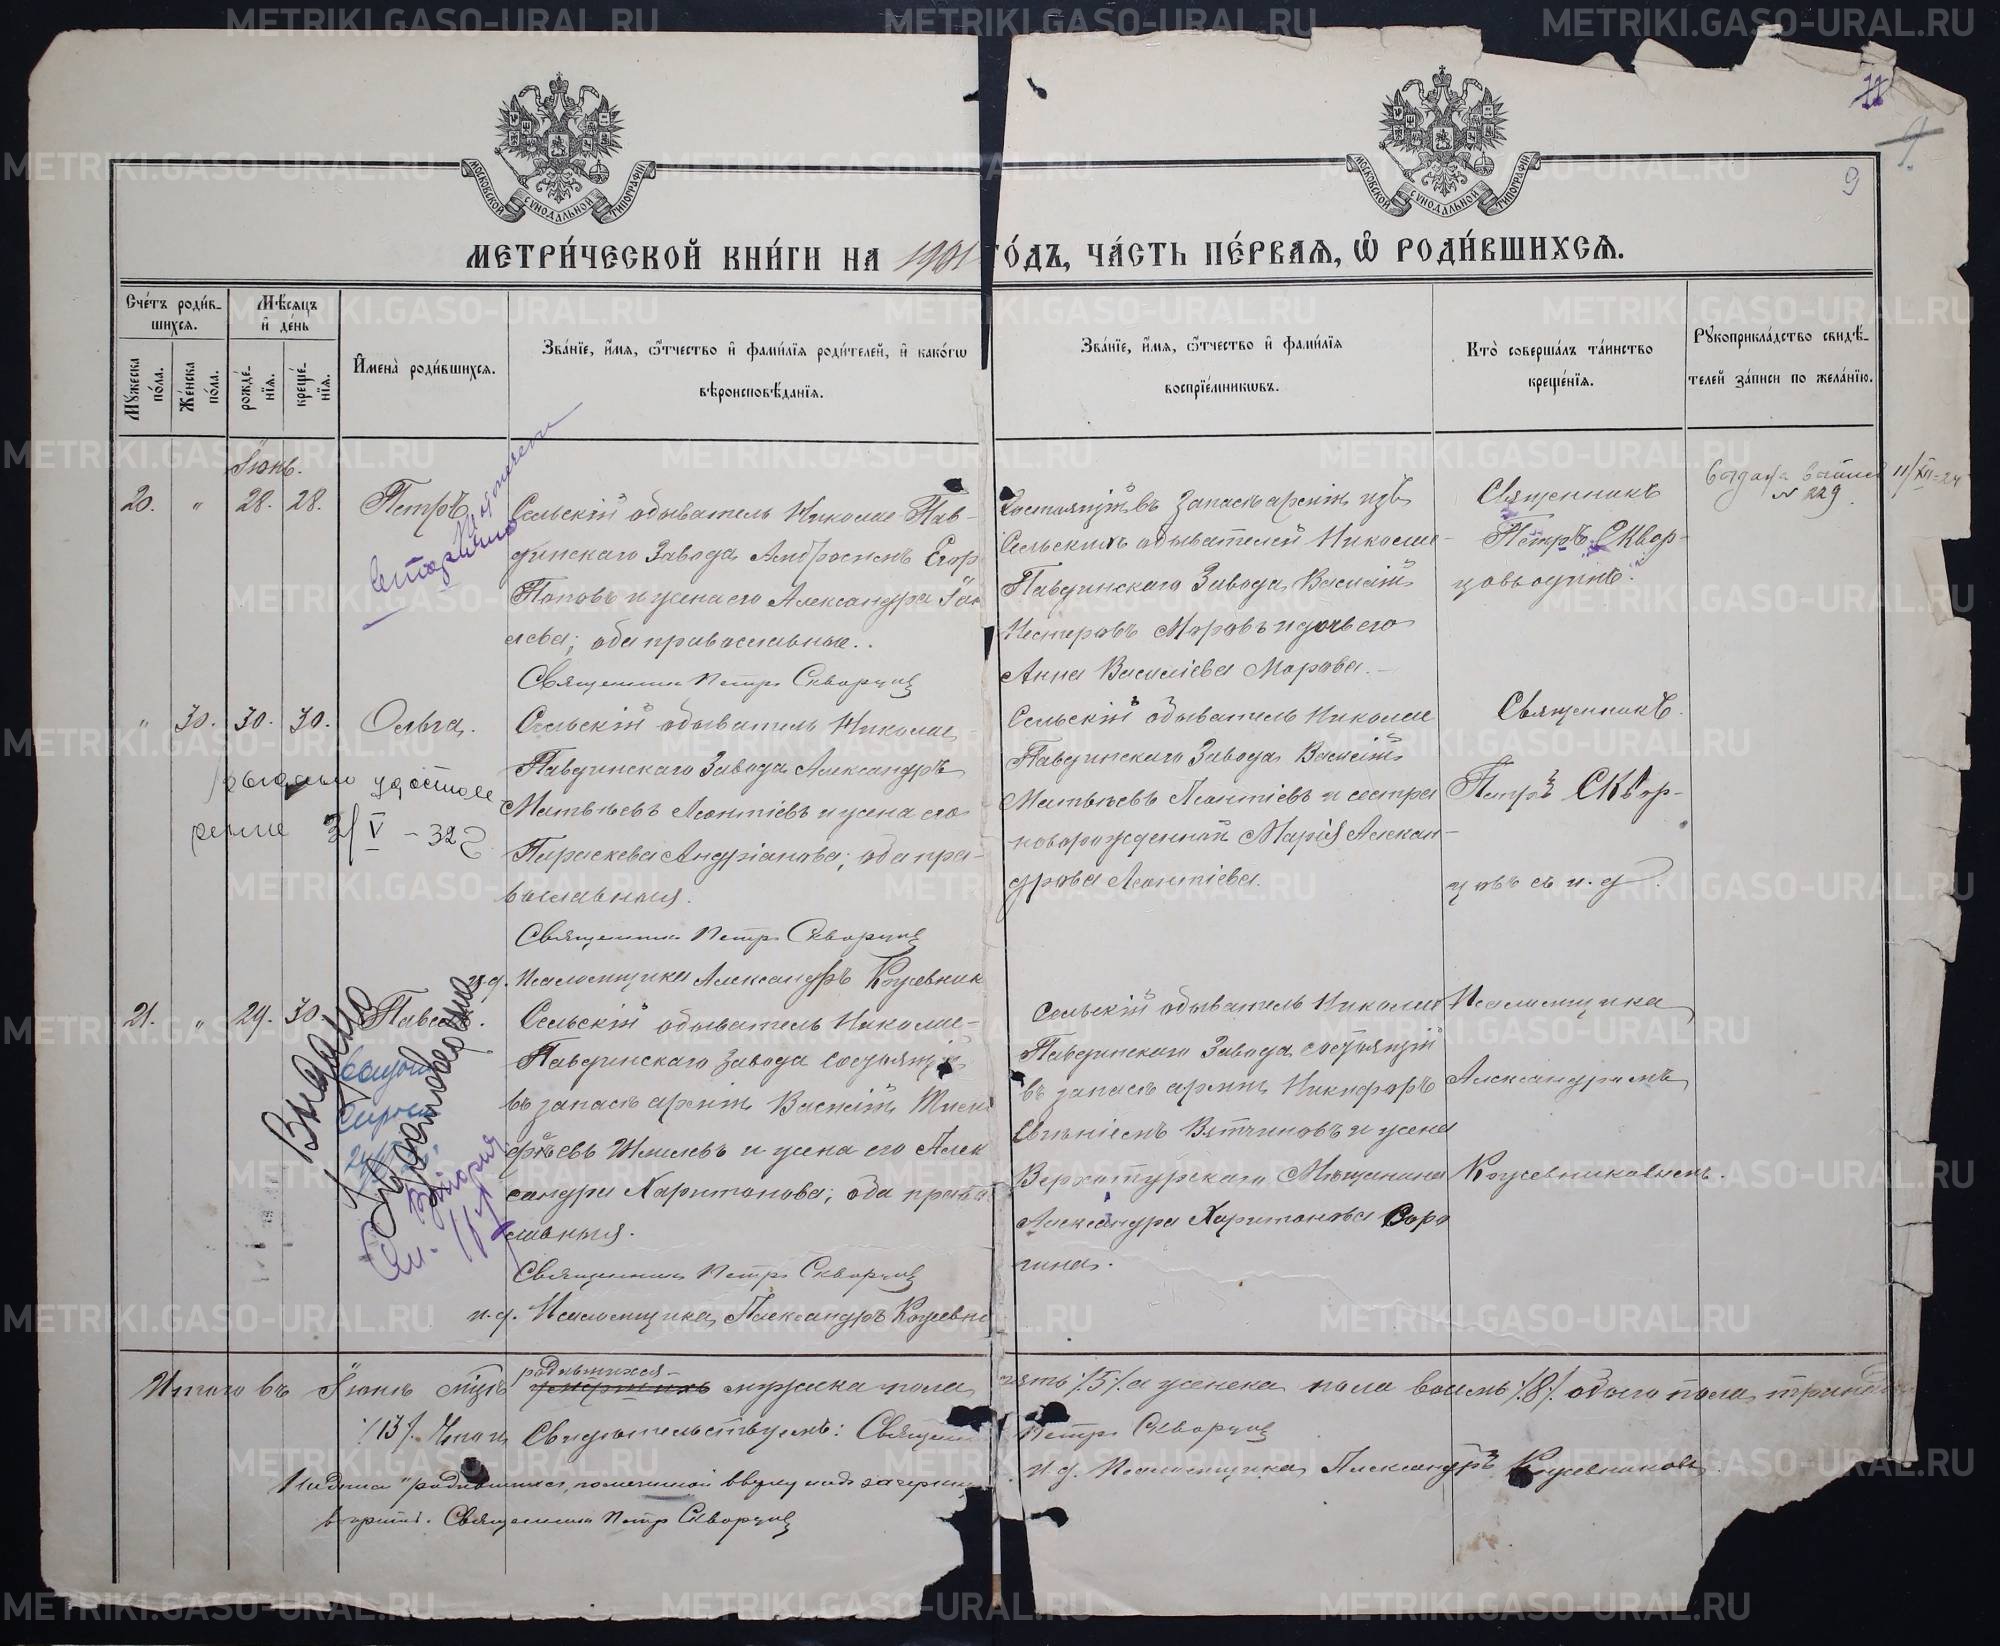 МОСКОВСКОЙ СѴНОДАЛЬНОЙ ТИПОГРАФІИ
МОСКОВСКОЙ СѴНОДАЛЬНОЙ ТИПОГРАФІИ
9
МЕТРИ́ЧЕСКОЙ КНИ́ГИ НА 1901 ГО́ДЪ, ЧА́СТЬ ПЕ́РВАѦ, Ѡ РОДИ́ВШИХСѦ.
Сче́тъ роди́в-
шихсѧ.
Мꙋжеска по́ла.
Же́нска по́ла.
Мѣ́сѧцъ
и де́нь
рожде́-
нїѧ.
креще́-
нїѧ.
И҆мена̀ роди́вшихсѧ.
Зва́нїе, и҆́мѧ, ѻ҆́тчество и҆ фами́лїѧ роди́телей, и҆ како́гѡ
вѣроисповѣ́данїѧ.
Зва́нїе, и҆́мѧ, ѻ҆́тчество и҆ фами́лїѧ
воспрїе́мникѡвъ.
Кто̀ соверша́лъ та́инство
креще́нїѧ.
Рꙋкоприкла́дство свидѣ́-
телей за́писи по жела́нїю.
Іюнь.
20. " 28. 28. Петръ
Сельскій обыватель Николае-Пав-
динскаго Завода Амвросимъ Егор
Поповъ и жена его Александра Іак
лева; оба православные.
Священникъ Петръ Скворцов
Состоящій въ запасѣ арміи изъ
Сельскихъ обывателей Николае-
Павдинскаго Завода Василій
Нестеровъ Моровъ и дочь его
Анна Василіева Морова.
Священникъ
Петръ Сквор-
цовъ одинъ.
№ 229
11/XII-24
" 30. 30. 30. Ольга.
Сельскій обыватель Николае-
Павдинскаго Завода Александръ
Матвѣевъ Леонтіевъ и жена его
Параскева Андріанова; оба пра-
вославныя.
Священникъ Петръ Скворцов
и.д. Псаломщика Александръ Кожевник
Сельскій обыватель Николае
Павдинскаго Завода Василій
Матвѣевъ Леонтіевъ и сестра
новорожденной Марія Алексан-
дрова Леонтіева.
Священникъ
Петръ Сквор-
цовъ съ и.д.
удостове
рение 31/V - 32
21. " 29. 30. Павелъ.
Сельскій обыватель Николае-
Павдинскаго Завода состоящій
въ запасѣ арміи Василій Тимо
фѣевъ Шмелевъ и жена его Алек
сандра Харитонова; оба право
славныя.
Священникъ Петръ Скворцов
и.д. Псаломщика Александръ Кожевни
Сельскій обыватель Николае
Павдинскаго Завода состоящій
въ запасѣ арміи Никифоръ
Вятчиновъ и жена
Верхотурскаго Мѣщанина
Александра Харитонова Соро
кина.
Псаломщика
Александромъ
Кожевниковымъ.
Выдано
Удостоверение
Итого въ Іюнѣ мцѣ родившихся мужска пола пять /5/ а женска пола восемь /8/ обоего пола тринадца
/13/. Свидѣтельствуемъ: Священ Петръ Скворцов
и.д. Псаломщика Александръ Кожевниковъ.
Надпись "родившихся" помѣщенной вверху надъ зачеркн
вѣрить. Священникъ Петръ Скворцов
METRIKI.GASO-URAL.RU